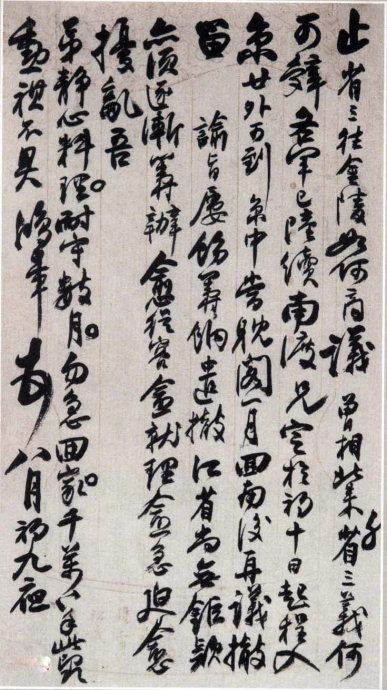 止省三在金陵如何商議曾相此案於省三義何
可辭各軍已陸續南渡兄定於初十日起程入
京廿外可到京中當耽閣一月回南後再議撤
留諭旨屢飭籌餉遣撤江省尚無鉅款
亦須逐漸籌辦愈從容愈就理愈急迫愈
擾亂吾
弟靜心料理耐守數月勿急回家千萬〻手此
勳祺不具鴻章 八月初九夜